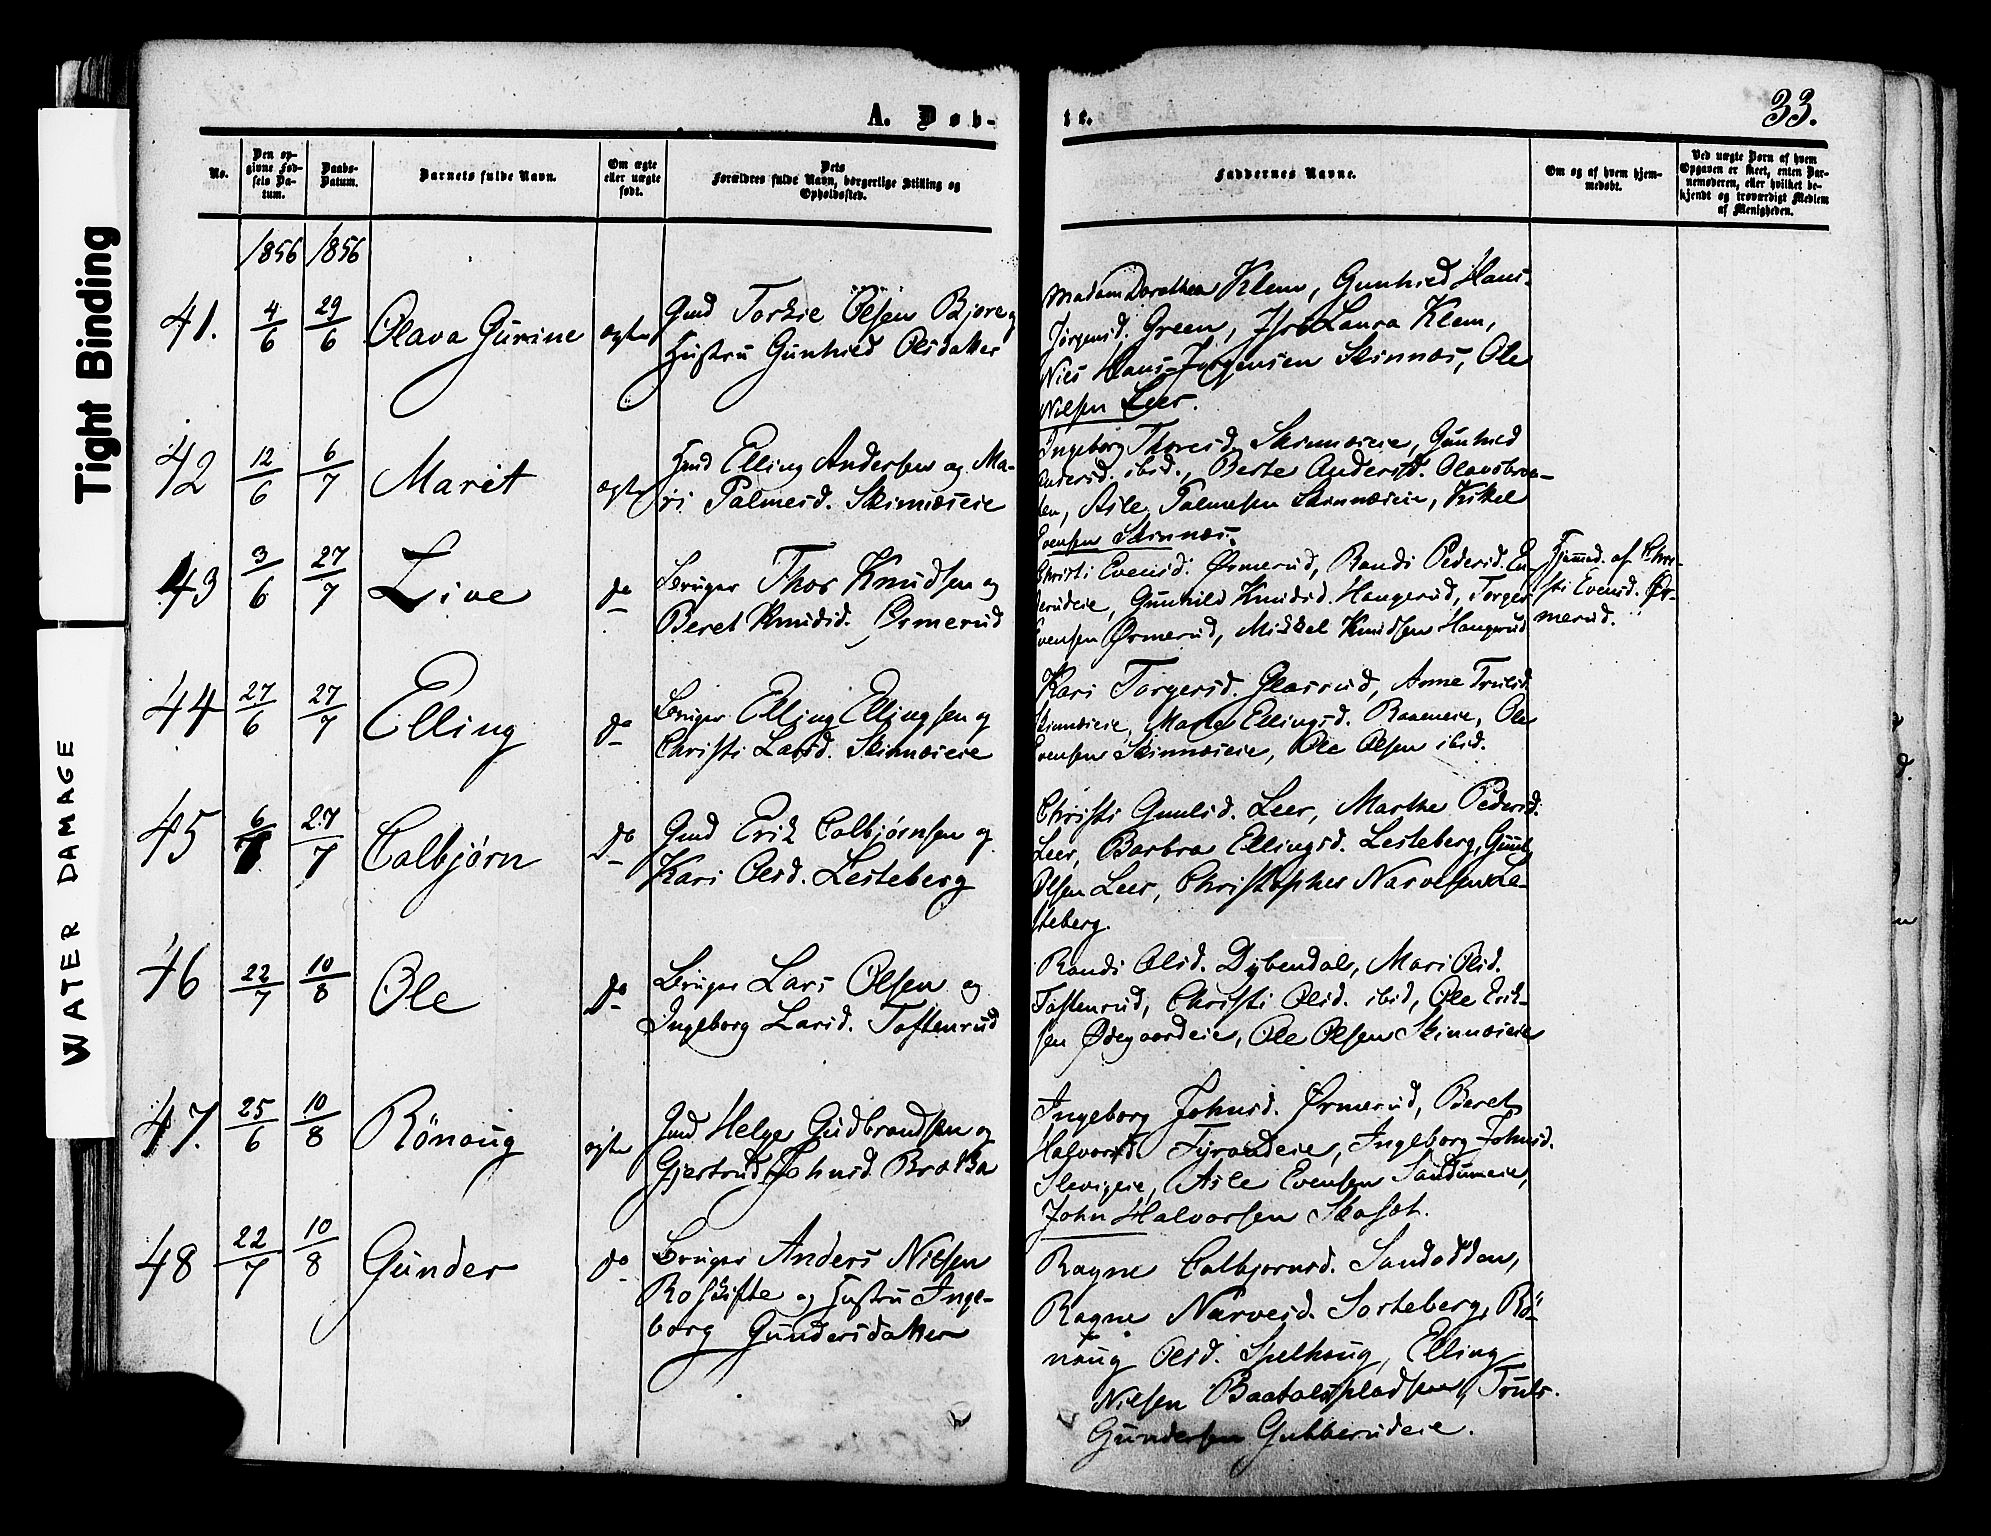 Tight Binding
WATER DAMAGE
A. Døb-
te.
33.
No.
Den op-
givne Fød-
sels Da-
tum.
Daabs-
Datum.
Barnets fulde Navn.
Om ægte
eller uægte
født.
Dets
Forældres fulde Navn, borgerlige Stilling og
Opholdssted.
Faddernes Navne.
Om og af hvem hjem-
medøbt.
Ved uægte Børn af hvem
Opgaven er skeet, enten Bar-
nemoderen, eller hvilket be-
kjendt og troværdigt Medlem
af Menigheden.
1856 1856
41. 4/6 29/6 Olava Gurine ægte
Gmd Torkie Olsen Bjore og
Hustru Gunhied Olsdatter
Madam Dorathea Klem, Gunhied Hans-
Jørgensd. Green, Jfr Laura Klem,
Niels Hans-Jørgensen Skinnes, Ole
Nilsen Leer.
42 12/6 6/7 Marit ægte
Hmd Elling Andersen og Ma-
ri Palmesd. Skinnæseie
Ingeborg Thoresd. Skinnæseie, Gunhied
Andersd. ibid., Berte Andersd. Olavsbraa-
ten, Asle Palmesen Skinnæseie, Kittel
Evensen Skinnæs.
43 3/6 27/7 Live do
Bruger Thor Knudsen og
Beret Knudsd. Ørmerud
Christi Evensd. Ørmerud, Randi Pedersd. En-
gerudeie, Gunhild Knudsd. Haugerud, Torger
Evensen Ørmerud, Mikkel Knudsen Haugerud
Hjemmed. af Chri-
sti Evensd. Ør-
merud.
44 27/6 27/7 Elling do
Bruger Elling Ellingsen og
Christi Larsd. Skinnæseie
Kari Torgersd. Glasrud, Anne Trulsd.
Skinnæseie, Marte Ellingsd. Raaemeie, Ole
Evensen Skinnæseie, Ole Olsen ibid.
45 6/7 27/7 Colbjørn do
Gmd Erik Colbjørnsen og
Kari Olsd. Lesteberg
Christi Gunulsd. Leer, Marthe Pedersd.
Leer, Barbra Ellingsd. Lesteberg, Gunul
Olsen Leer, Christopher Narvesen Le-
steberg.
46 22/7 10/8 Ole do
Bruger Lars Olsen og
Ingeborg Larsd. Toftenrud
Randi Olsd. Dybendal, Mari Olsd.
Toftenrud, Christi Olsd. ibid, Ole Erik-
sen Ødegaardeie, Ole Olsen Skinnæseie
47. 25/6 10/8 Rönaug ægte
Gmd Helge Gudbrandsen og
Gjertrud Johnsd. Braata
Ingeborg Johnsd. Ørmerud, Beret
Halvorsd. Fyrandeie, Ingeborg Johnsd.
Slevigeie, Asle Evensen Sandumeie,
John Halvorsen Skafsot.
48 22/7 10/8 Gunder do
Bruger Anders Nielsen
Roskifte og Hustru Inge-
borg Gundersdatter
Ragne Colbjørnsd. Sandodden,
Ragne Narvesd. Sorteberg, Rö-
naug Olsd. Spelhaug, Elling
Nielsen Baatolspladsen, Truls
Gundersen Gubberudeie.